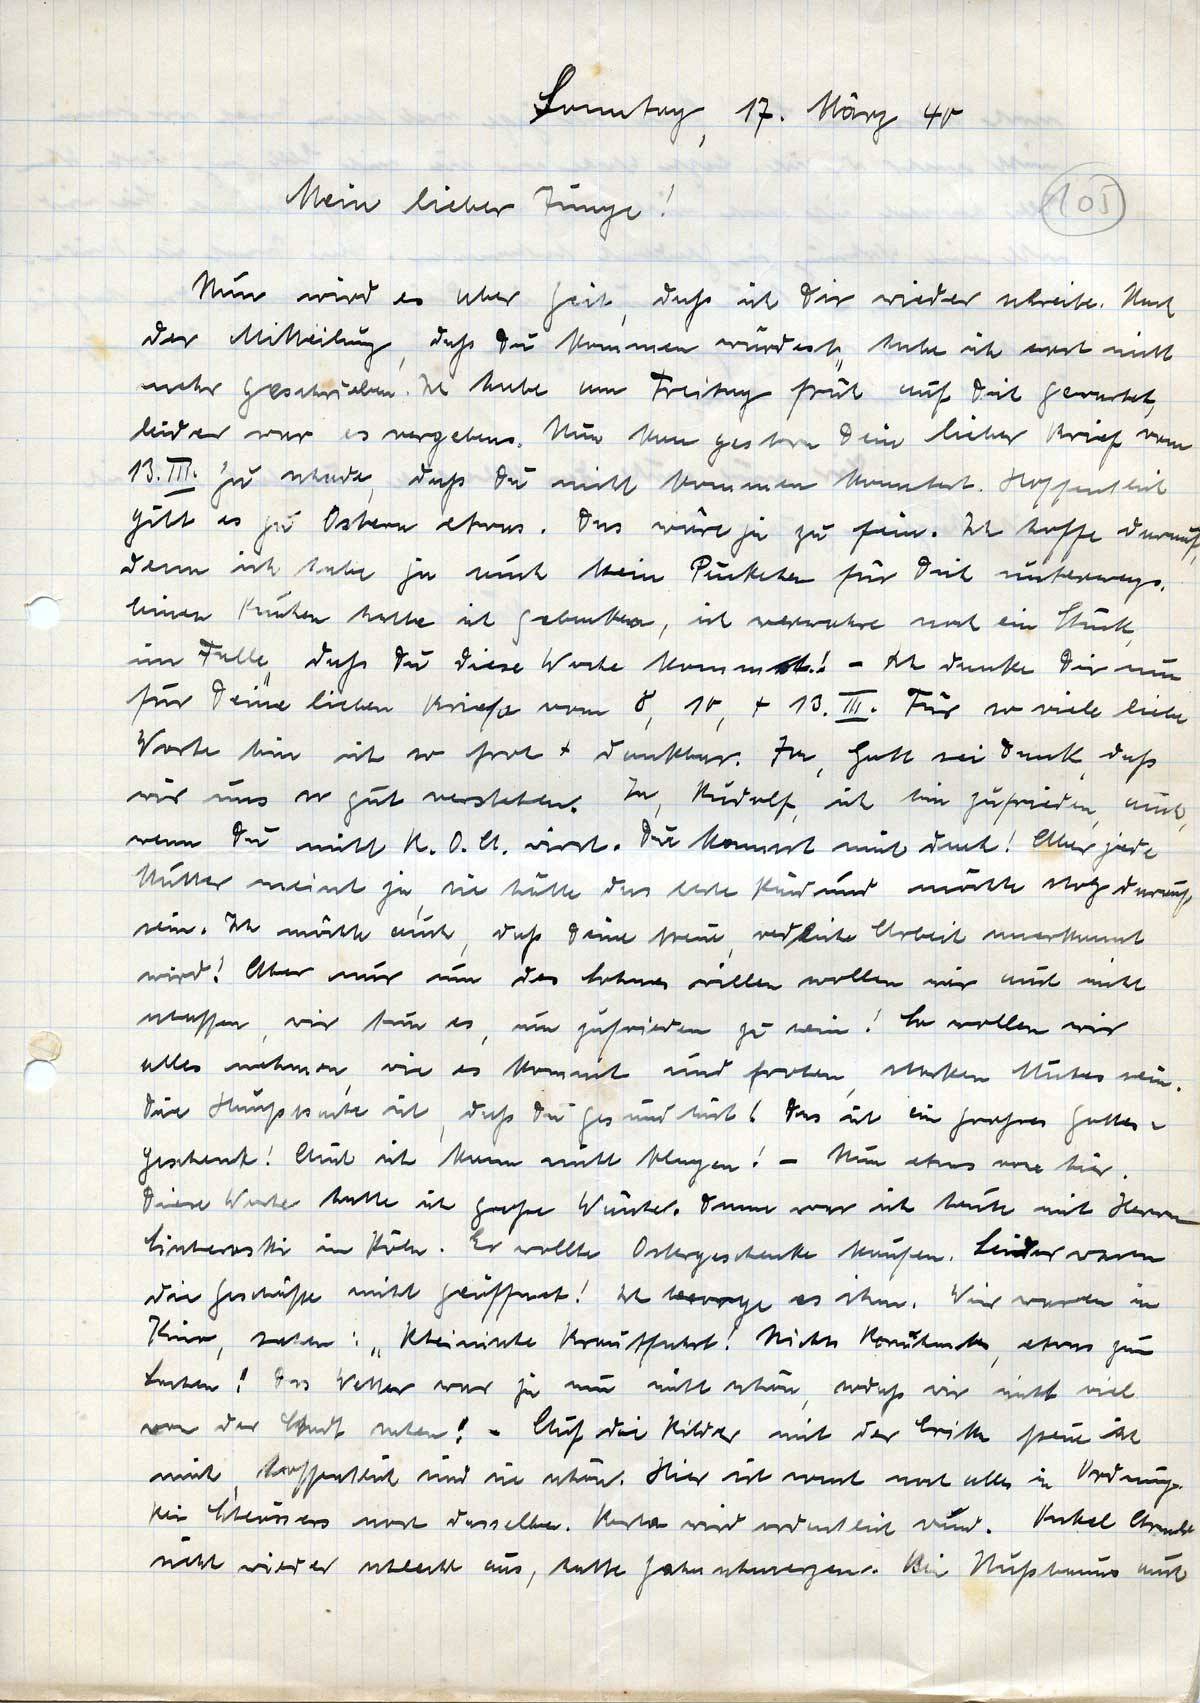 Sonntag, 17. März 40
105
Mein lieber Junge!
Nun wird es aber Zeit, daß ich Dir wieder schreibe. Nach
der Mitteilung, daß Du kommen würdest, habe ich erst nicht
mehr geschrieben. Ich habe am Freitag früh auf Dich gewartet,
leider war es vergebens. Nun kam gestern Dein lieber Brief vom
13. III. Zu schade, daß Du nicht kommen konntest. Hoffentlich
gibt es zu Ostern etwas. Das wäre ja zu fein. Ich hoffe darauf,
denn ich habe ja auch kein Päckchen für Dich unterwegs.
Einen Kuchen hatte ich gebacken, ich verwahre noch ein Stück,
im Falle, daß Du diese Woche kommst.! – Ich danke Dir nun
für Deine lieben Briefe vom 8, 10, + 13. III. Für so viele liebe
Worte bin ich so froh + dankbar. Ja, Gott sei Dank, daß
wir uns so gut verstehen. Ja, Rudolf, ich bin zufrieden, auch,
wenn Du nicht R. O. A. wirst. Du kennst mich doch! Aber jede
Mutter meint ja, sie hätte das beste Kind und möchte stolz darauf
sein. Ich möchte auch, daß Deine treue, redliche Arbeit anerkannt
wird! Aber nur um des Lohnes willen wollen wir auch nicht
schaffen, wir tun es, um zufrieden zu sein! So wollen wir
alles nehmen, wie es kommt und frohen, starken Mutes sein.
Die Hauptsache ist, daß Du gesund bist! Das ist ein großes Gottes-
geschenk! Auch ich kann nicht klagen! – Nun etwas von hier.
Diese Woche hatte ich große Wäsche. Dann war ich heute mit Herrn
in Köln. Er wollte Ostergeschenke kaufen. Leider waren
die Geschäfte nicht geöffnet! Ich besorge es ihm. Wir waren im
Kino, sahen: „Rheinische Brautfahrt! Nichts Berühmtes, etwas zum
Lachen! Das Wetter war ja nun nicht schön, sodaß wir nicht viel
von der Stadt sahen! – Auf die Bilder mit der Erika freue ich
mich, hoffentlich sind sie schön. Hier ist sonst noch alles in Ordnung.
Bei Schlössers noch dasselbe. wird ordentlich rund. Onkel
sieht wieder schlecht aus, hatte Zahnschmerzen. Bei Nußbaums auch